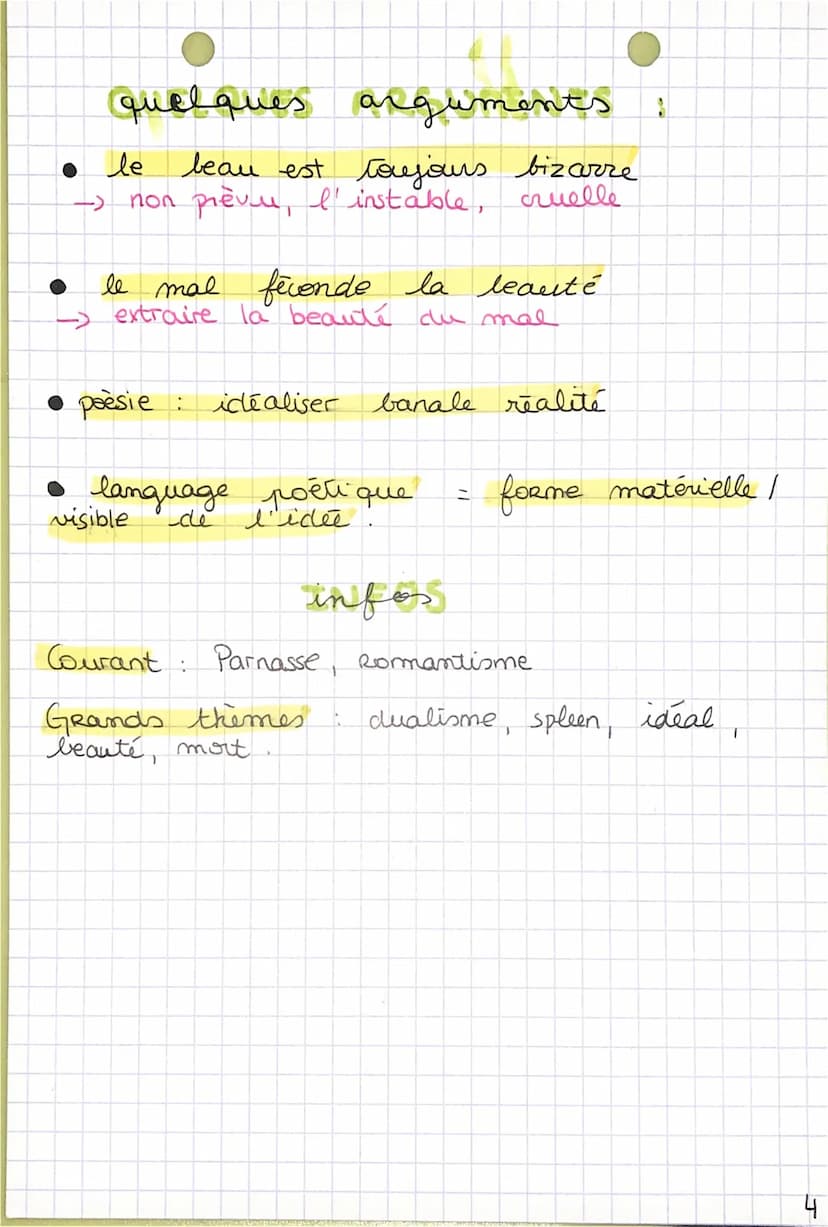 quelques arguments :
• le beau est toujours bizarre
→ non prèvu, l'instable, cruelle
• le mal féconde la beauté
→ extraire la beauté du mal
• poèsie : idéaliser banale réalité
• language poétique = forme matérielle /
visible de l'idée.
infos
Courant : Parnasse, romantisme
Grands thèmes : dualisme, spleen, idéal,
beauté, mort.
4